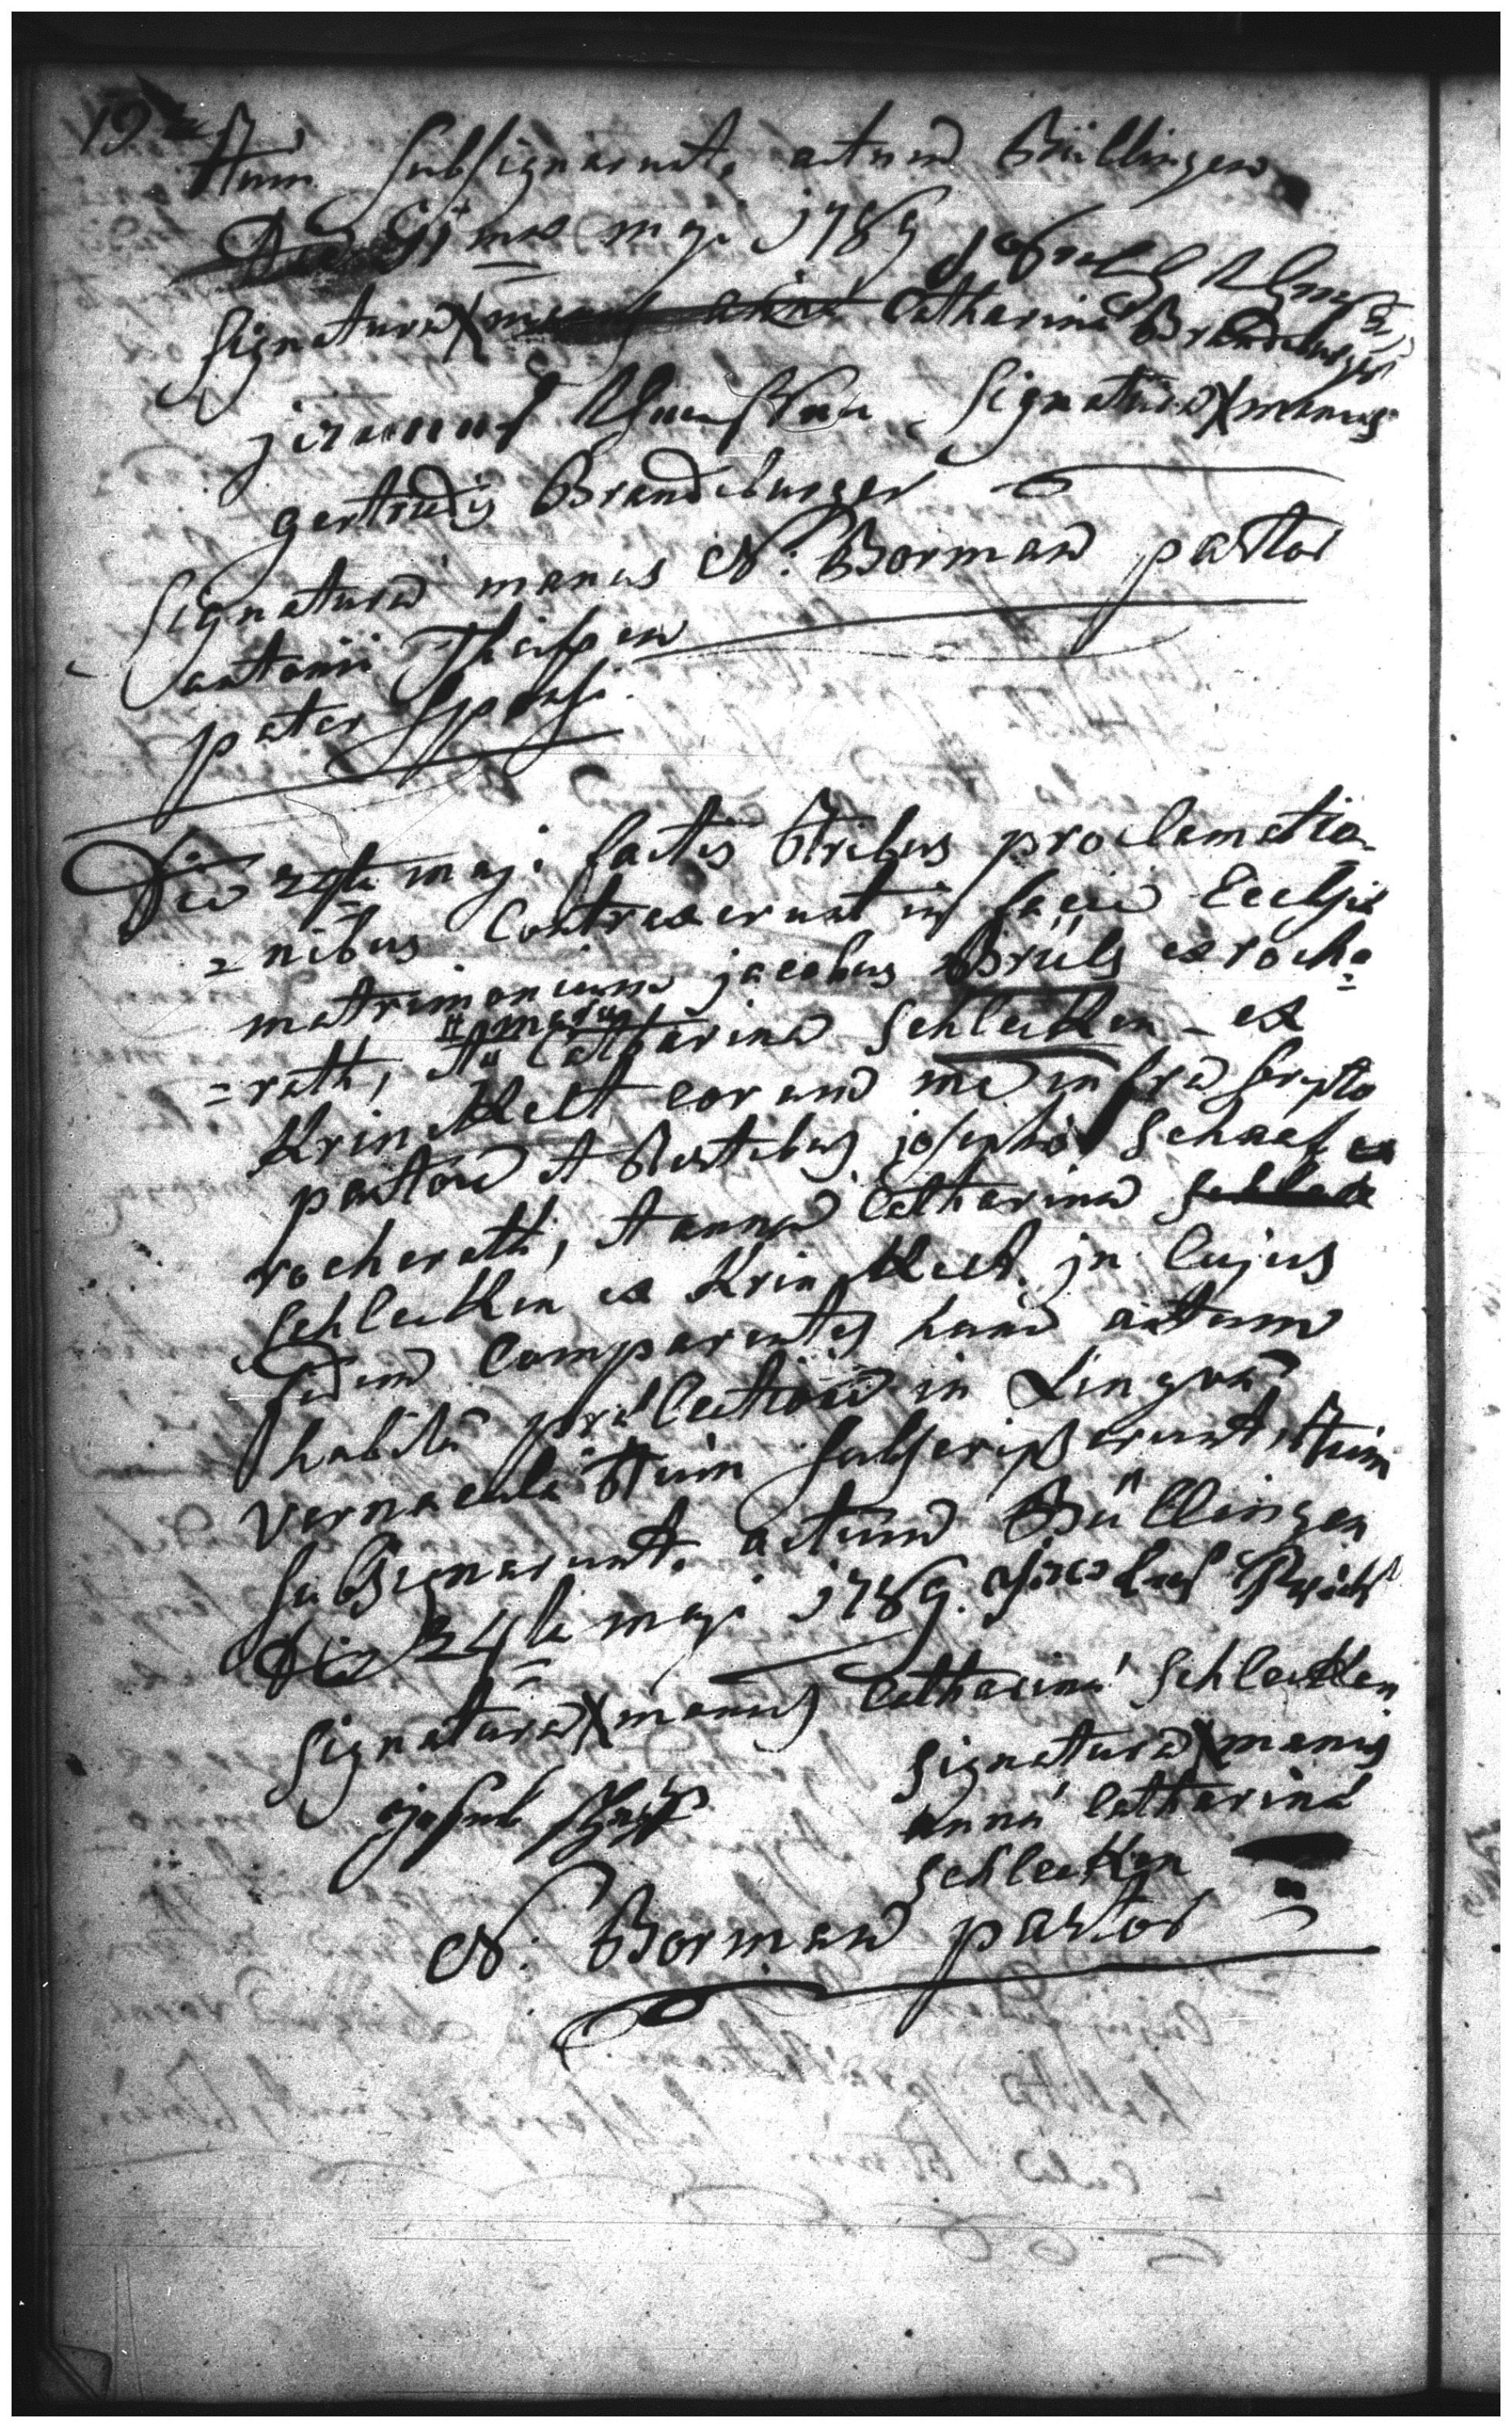 19
tum subsignarunt, actum Büllingen
Die maji 1789
signatura X manus anna Catharina Brandeburger
signatura X manus
gertrudis Brandeburger
signatura manus N: Borman pastor
antonii Theissen
pater sponsi
Die 24ta maji factis tribus proclamatio-
=nibus Contraxerunt in facie Ecclesiæ
matrimonium jacobus Brüls ex roche=
=rath, et maria Catharina Schleiken - ex
Krinckelt coram me infra scripto
pastore et testibus josepho Schaaf ex
rocherath, et anna Catharina
Schleiken ex Krinckelt. in Cujus
fidem Comparentes hunc actum
habita prælectione in Lingva
vernacula tum subscripserunt, tum
subsignarunt. actum Büllingen
Die 24ta maji 1789.
signatura X manus Catharina Schleiken
signatura X manus
anna Catharina
Schleiken
N: Borman pastor